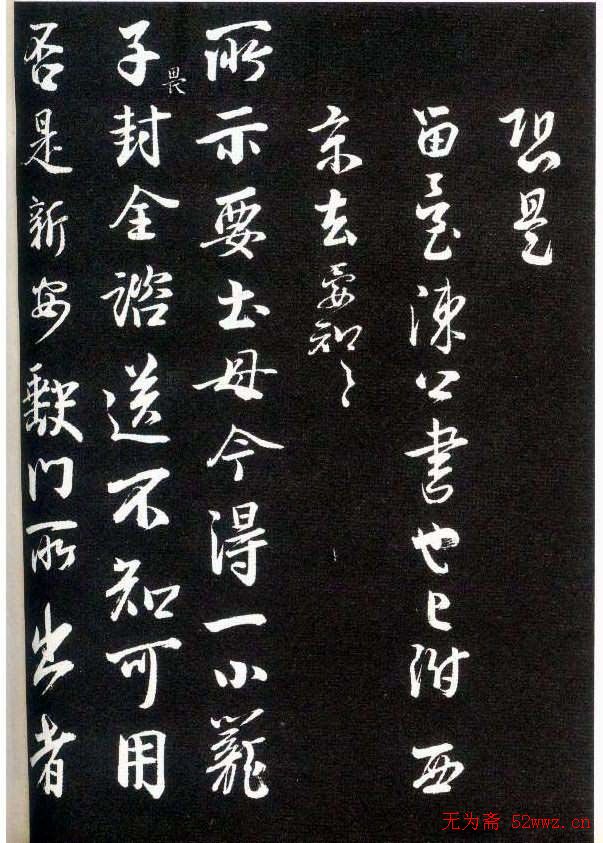 恐是
留臺陳公書也已附西
京去要知〻
所示要土母今得一小籠
子封全諮送不知可用
畏
否是新安門所出者
无为斋 52wwz.cn